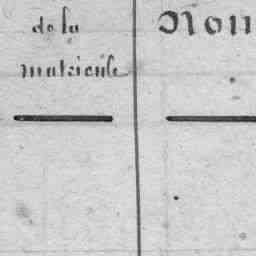 de la
matricule
Nom